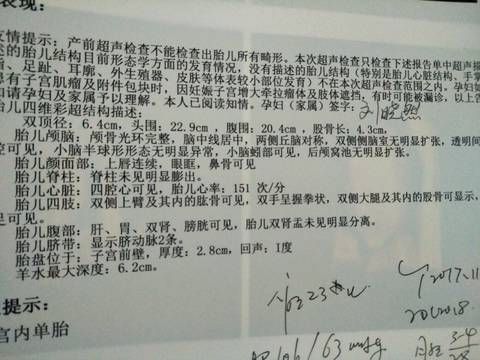 表现:
友情提示：产前超声检查不能检查出胎儿所有畸形。本次超声检查只检查下述报告单中超声
述的胎儿结构目前形态学方面的发育情况，没有描述的胎儿结构（特别是胎儿心脏结构、手掌
指、足趾、耳廓、外生殖器、皮肤等体表较小部位发育）不在本次超声检查范围之内。孕妇如
患有子宫肌瘤及附件包块时，因妊娠子宫增大牵拉瘤体及肢体遮挡，有时可能被漏诊，以上告
知请孕妇及家属予以理解。本人已阅读知情。孕妇（家属）签字：
胎儿四维彩超结构描述：
双顶径：6.4cm，头围：22.9cm，腹围：20.4cm，股骨长：4.3cm，
胎儿颅脑：颅骨光环完整，脑中线居中，两侧丘脑对称，双侧侧脑室无明显扩张，透明间
腔可见，小脑半球形态无明显异常，小脑蚓部可见，后颅窝池无明显扩张。
胎儿颜面部：上唇连续，眼眶，鼻骨可见
胎儿脊柱：脊柱未见明显膨出。
胎儿心脏：四腔心可见，胎儿心率：151 次/分
胎儿四肢：双侧上臂及其内的肱骨可见，双手呈握拳状，双侧大腿及其内的股骨可显示，
足可见。
胎儿腹部：肝、胃、双肾、膀胱可见，胎儿双肾盂未见明显分离。
胎儿脐带：显示脐动脉2条。
胎盘位于：子宫前壁，厚度：2.8cm，回声：I度
羊水最大深度：6.2cm。
提示:
宫内单胎
2017.11
2018.